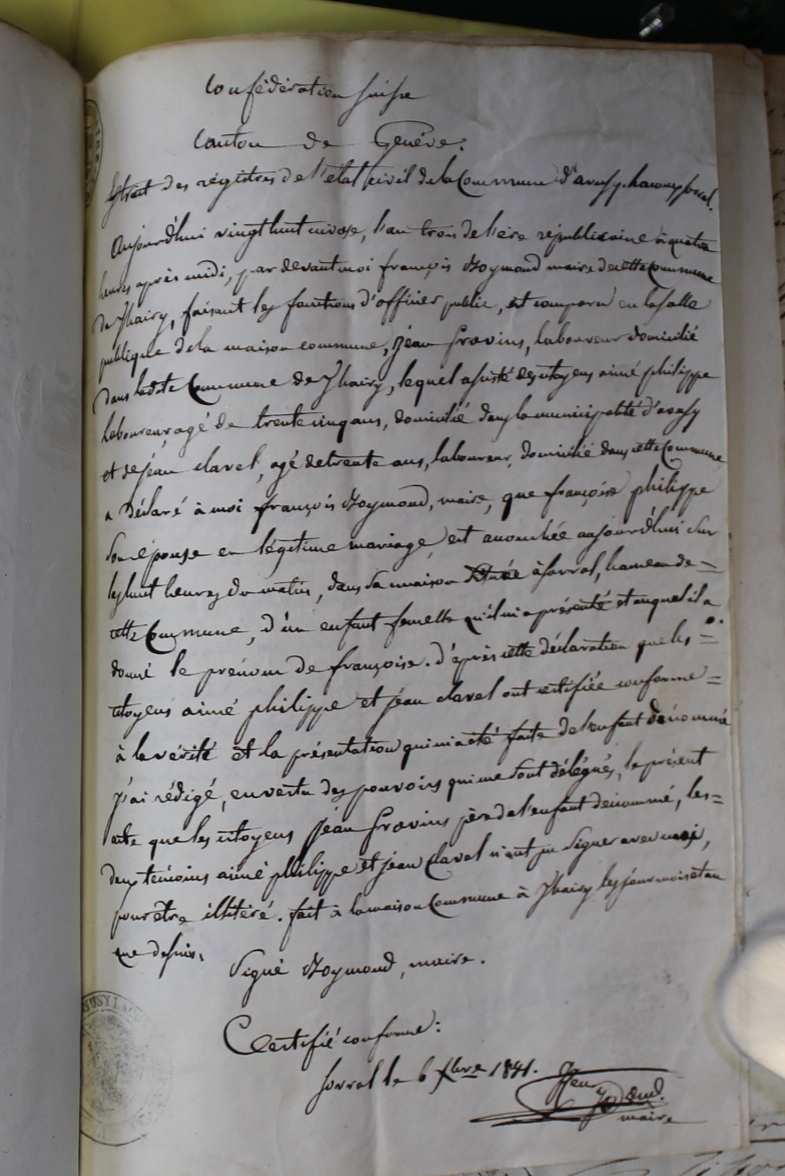 Confédération Suisse
Canton de Genève.
Extrait des régistres de l'état civil de la Commune d'avusy
Aujourd'hui vingt huit nivose, l'an trois de l'ère républicaine à quatre
heures après midi, par devant moi françois Raymond maire de cette Commune
de Thairy, faisant les fonctions d'officier public, est comparu en la salle
publique de la maison commune, Jean Gravins, laboureur domicilié
dans ladite Commune de Thairy, lequel assisté des citoyens aimé philippe
laboureur, agé de trente cinq ans, domicilié dans la municipalité d'avusy
et de jean clavel, agé de trente ans, laboureur, domicilié dans cette Commune
a déclaré à moi françois Raymond, maire, que françoise philippe
son épouse en légitime mariage, est accouchée aujourd'hui sur
les huit heures du matin, dans sa maison située à Sorral, hameau de =
cette Commune, d'un enfant femelle qu'il m'a présenté et auquel il a
donné le prénom de françoise. d'après cette déclaration que les =
citoyens aimé philippe et jean clavel ont certifiée conforme =
à la vérité et la présentation qui m'a été faite de l'enfant dénommé
j'ai rédigé, en vertu des pouvoirs qui me sont délégués, le présent
acte que les citoyens Jean Gravins père de l'enfant dénommé, les =
deux témoins aimé philippe et jean clavel n'ont pu signer avec moi,
pour être illitéré. fait à la maison Commune à Thairy les jour mois et an
que dessus.
Signé Raymond, maire.
Certifié conforme:
Sorral le 6 Xbre 1841.
maire